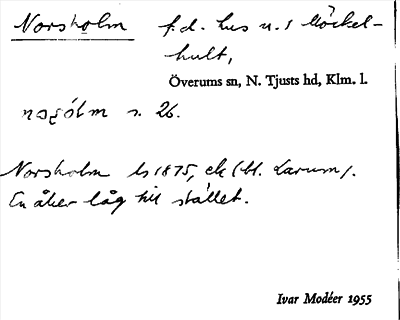 Norsholm f.d. hus u. s Möckel-
hult,
Överums sn, N. Tjusts hd, Klm. l.
n. 26.
Norsholm hs 1875, ek (bl. Larum).
En åker låg till stället.
Ivar Modéer 1955